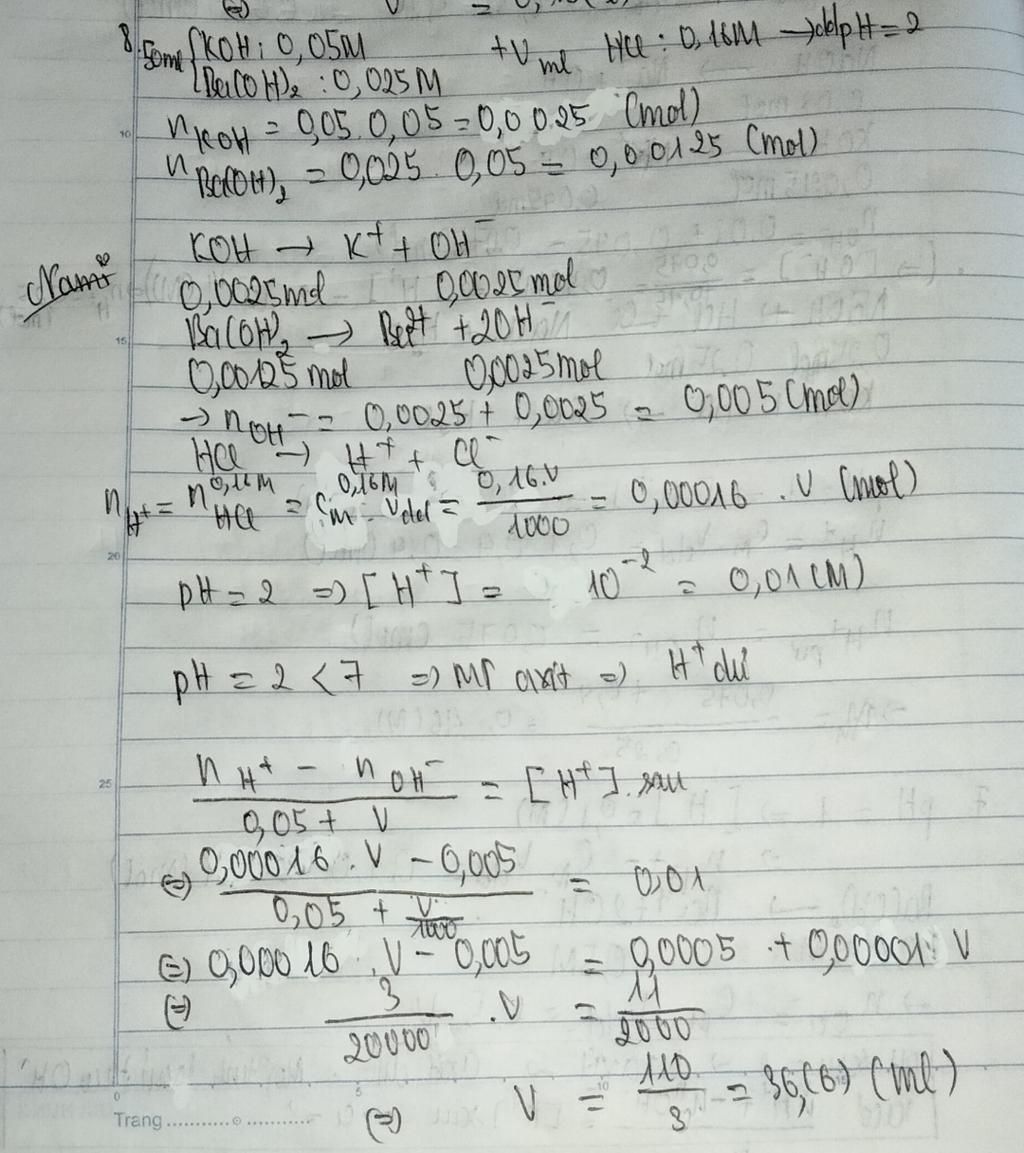 8. 50ml { KOH : 0,05M + V ml HCl : 0,16M → dd pH = 2
Ba(OH)₂ : 0,025M
n KOH = 0,05. 0,05 = 0,0025 (mol)
n Ba(OH)₂ = 0,025. 0,05 = 0,00125 (mol)
KOH → K⁺ + OH⁻
0,0025mol 0,0025mol
Ba(OH)₂ → Ba²⁺ + 2OH⁻
0,00125mol 0,0025mol
→ n OH⁻ = 0,0025 + 0,0025 = 0,005 (mol)
HCl → H⁺ + Cl⁻
0,16M 0,16M
n H⁺ = n HCl = CM. Vdd = 0,16.V / 1000 = 0,00016 . V (mol)
pH = 2 ⇒ [H⁺] = 10⁻² = 0,01 (M)
pH = 2 < 7 ⇒ MT axit ⇒ H⁺ dư
n H⁺ - n OH⁻ / 0,05 + V = [H⁺] sau
⇔ 0,00016 . V - 0,005 / 0,05 + V/1000 = 0,01
⇔ 0,00016 . V - 0,005 = 0,0005 + 0,00001. V
⇔ 3/20000 . V = 11/2000
⇔ V = 110/3 = 36,(6) (ml)
10
15
20
25
0 5 10
Trang